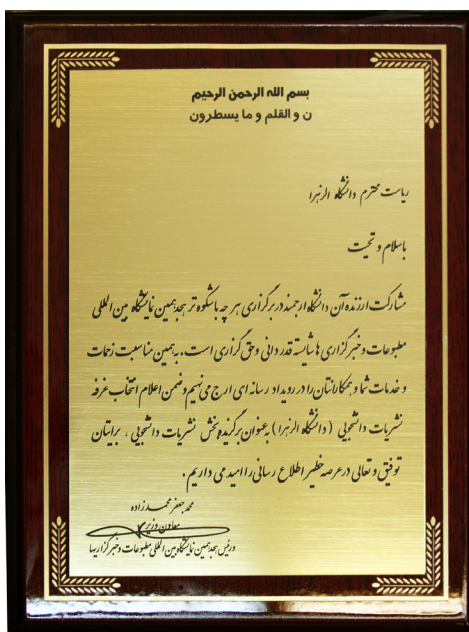 بسم الله الرحمن الرحیم
ن و القلم و ما یسطرون
ریاست محترم دانشگاه الزهرا
باسلام و تحیت
مشارکت ارزنده آن دانشگاه ارجمند در برگزاری هر چه باشکوه تر هجدهمین نمایشگاه بین المللی
مطبوعات و خبرگزاری ها شایسته قدردانی و حق گزاری است. به همین مناسبت زحمات
و خدمات شما و همکارانتان را در رویداد رسانه ای ارج می نهیم و ضمن اعلام انتخاب غرفه
نشریات دانشجویی (دانشگاه الزهرا) به عنوان برگزیده بخش نشریات دانشجویی، برایتان
توفیق و تعالی در عرصه خطیر اطلاع رسانی را امید می داریم.
محمد جعفر محمدزاده
معاون وزیر
و رئیس هجدهمین نمایشگاه بین المللی مطبوعات و خبرگزاریها